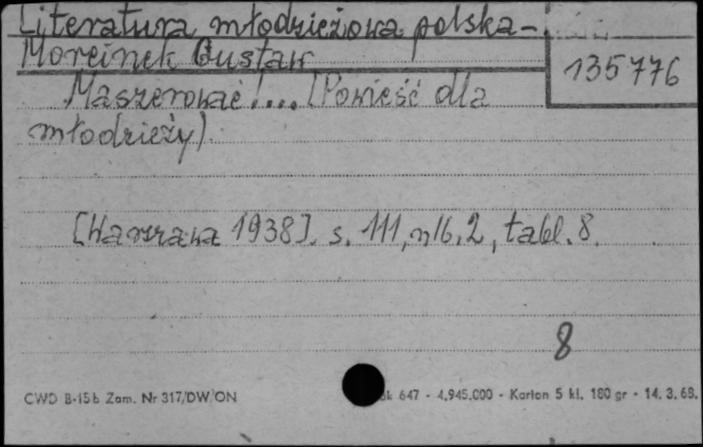 Literatura młodzieżowa polska-
Morcinek Gustaw
135776
Maszerować!... [Powieść dla
młodzieży].
[Warszawa 1938]. s. 111, nlb. 2, tabl. 8.
8
CWD B-15b Zam. Nr 317/DW/ON
647 - 4.945.000 - Karton 5 kl. 180 gr - 14. 3. 68.